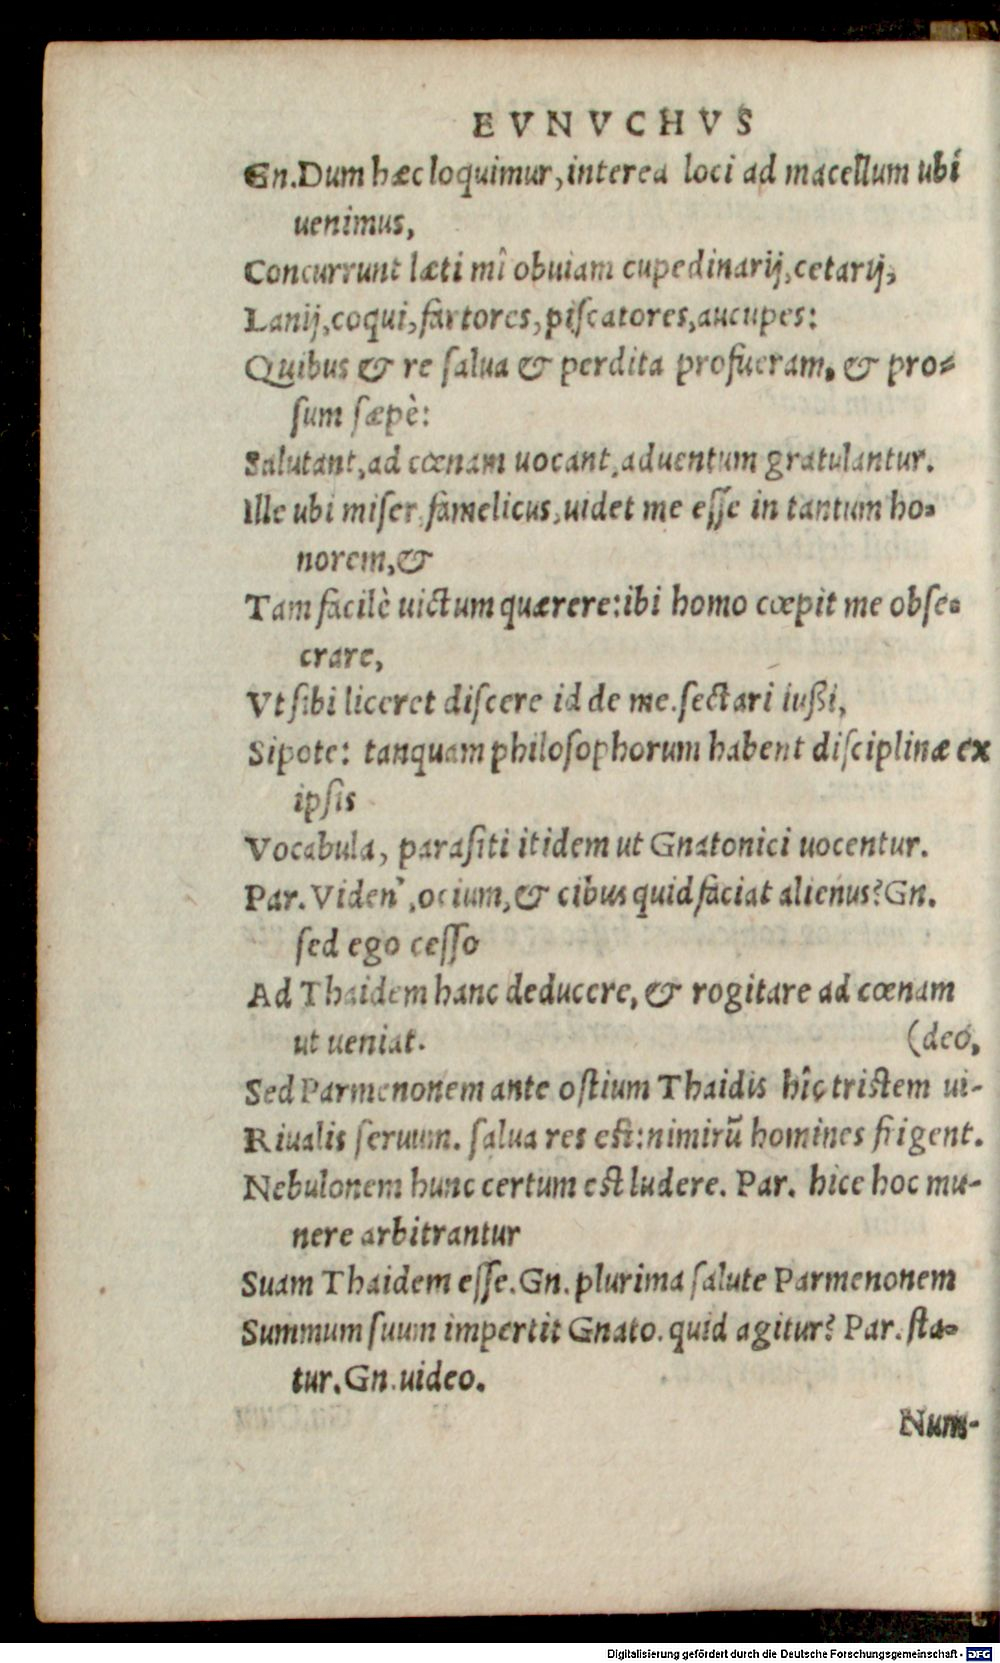 EVNVCHVS
Gn. Dum hæc loquimur, interea loci ad macellum ubi
uenimus,
Concurrunt læti mî obuiam cupedinarij, cetarij,
Lanij, coqui, fartores, piſcatores, aucupes:
Quibus & re ſalua & perdita profueram, & pro-
ſum ſæpè:
Salutant, ad cœnam uocant, aduentum gratulantur.
Ille ubi miſer, famelicus, uidet me eſſe in tantum ho-
norem, &
Tam facilè uictum quærere: ibi homo cœpit me obſe-
crare,
Vt ſibi liceret diſcere id de me. ſectari iußi,
Sipote: tanquam philoſophorum habent diſciplinæ ex
ipſis
Vocabula, paraſiti itidem ut Gnatonici uocentur.
Par. Viden', ocium, & cibus quid faciat alienus? Gn.
ſed ego ceſſo
Ad Thaidem hanc deducere, & rogitare ad cœnam
ut ueniat. (deo,
Sed Parmenonem ante oſtium Thaidis hîc triſtem ui-
Riualis ſeruum. ſalua res eſt: nimirũ homines frigent.
Nebulonem hunc certum eſt ludere. Par. hice hoc mu-
nere arbitrantur
Suam Thaidem eſſe. Gn. plurima ſalute Parmenonem
Summum ſuum impertit Gnato. quid agitur? Par. ſta-
tur. Gn. uideo.
Num-
Digitalisierung gefördert durch die Deutsche Forschungsgemeinschaft - DFG